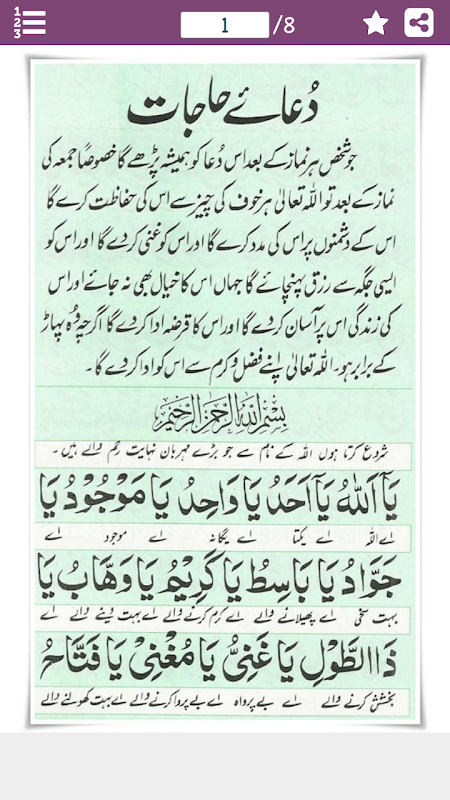 1
2
3
1 /8
دُعائے حاجات
جو شخص ہر نماز کے بعد اس دُعا کو ہمیشہ پڑھے گا خصوصًا جمعہ کی
نماز کے بعد تو اللہ تعالیٰ ہر خوف کی چیز سے اس کی حفاظت کرے گا
اس کے دشمنوں پر اس کی مدد کرے گا اور اس کو غنی کر دے گا اور اس کو
ایسی جگہ سے رزق پہنچائے گا جہاں اس کا خیال بھی نہ جائے اور اس
کی زندگی اس پر آسان کر دے گا اور اس کا قرضہ ادا کر دے گا اگرچہ وُہ پہاڑ
کے برابر ہو۔ اللہ تعالیٰ اپنے فضل و کرم سے اس کو ادا کر دے گا۔
بِسْمِ اللهِ الرَّحْمٰنِ الرَّحِيْمِ
شروع کرتا ہوں اللہ کے نام سے جو بڑے مہربان نہایت رحم والے ہیں۔
يَآ اَللّٰهُ يَآ اَحَدُ يَا وَاحِدُ يَا مَوْجُوْدُ يَا
اے اللہ اے یکتا اے یگانہ اے موجود اے
جَوَّادُ يَا بَاسِطُ يَا كَرِيْمُ يَا وَهَّابُ يَا
بہت سخی اے پھیلانے والے اے کرم کرنے والے اے بہت دینے والے اے
ذَا الطَّوْلِ يَا غَنِيُّ يَا مُغْنِيْ يَا فَتَّاحُ
بخشش کرنے والے اے بے پرواہ اے بے پروا کرنے والے اے بہت کھولنے والے